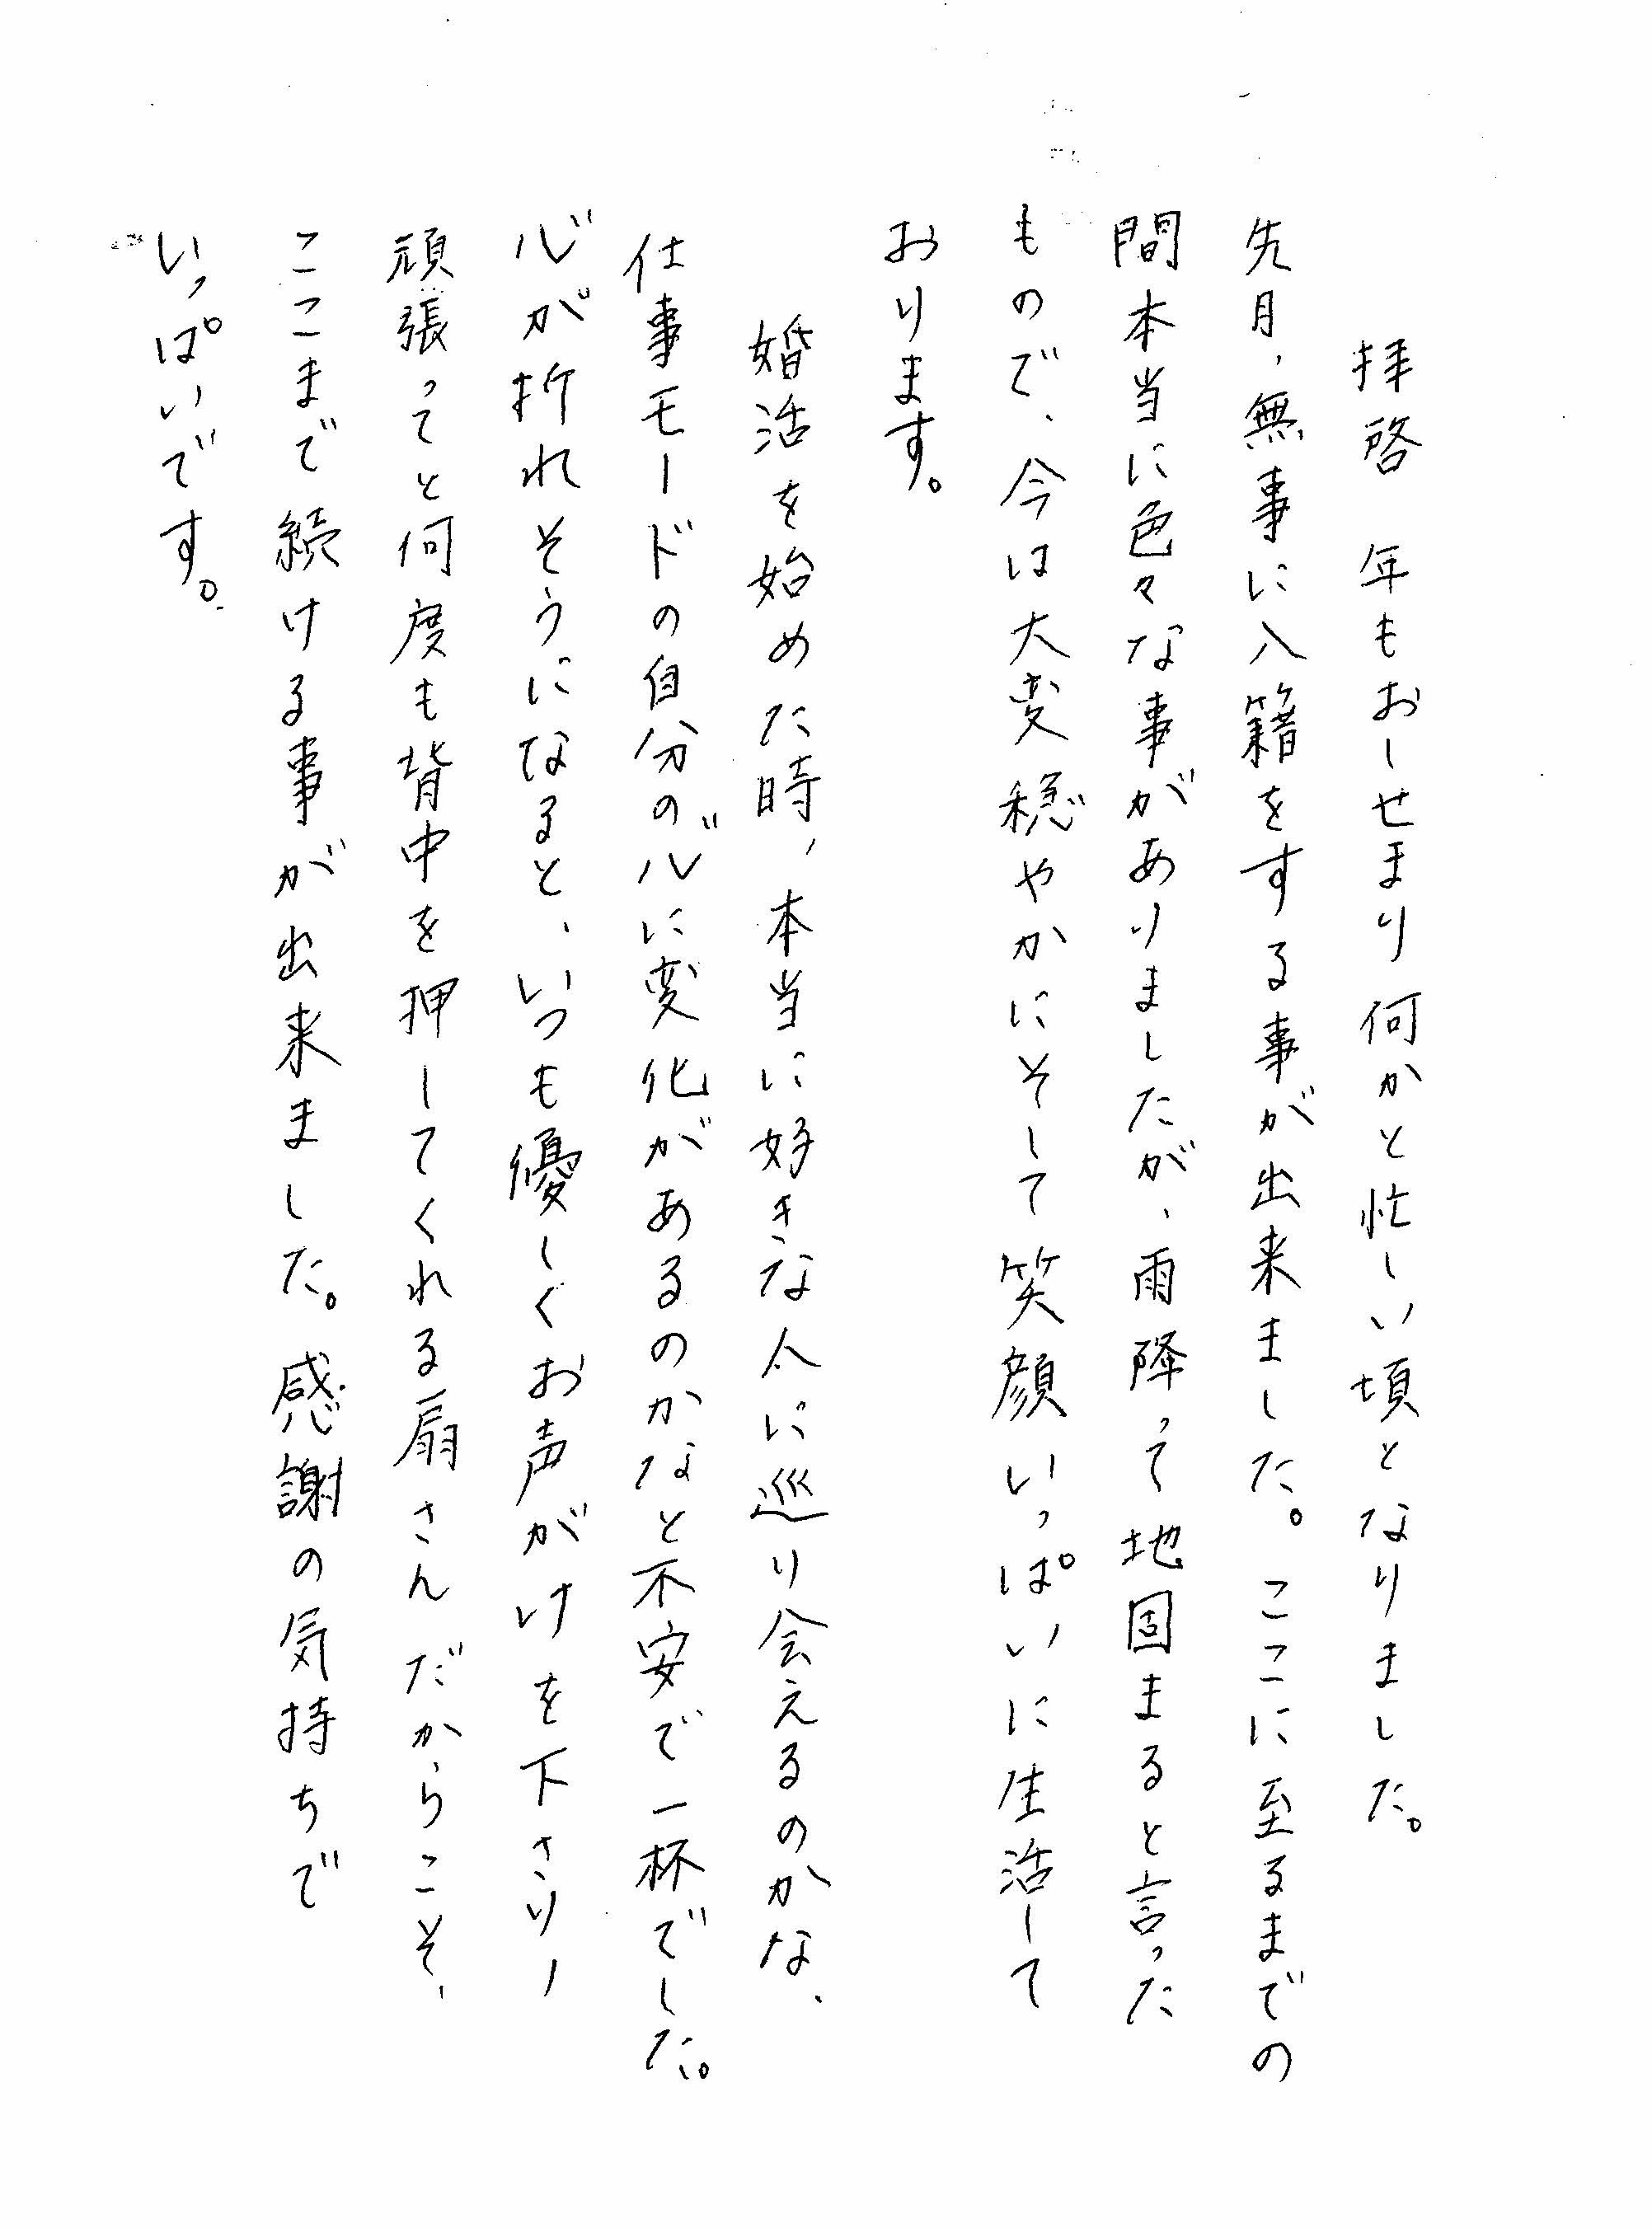 拝啓 年もおしせまり何かと忙しい頃となりました。
先月、無事に入籍をする事が出来ました。ここに至るまでの
間本当に色々な事がありましたが、雨降って地固まると言った
もので、今は大変穏やかにそして笑顔いっぱいに生活して
おります。
婚活を始めた時、本当に好きな人に巡り会えるのかな、
仕事モードの自分の心に変化があるのかなと不安で一杯でした。
心が折れそうになると、いつも優しくお声がけを下さり、
頑張ってと何度も背中を押してくれる扇さんだからこそ、
ここまで続ける事が出来ました。感謝の気持ちで
いっぱいです。